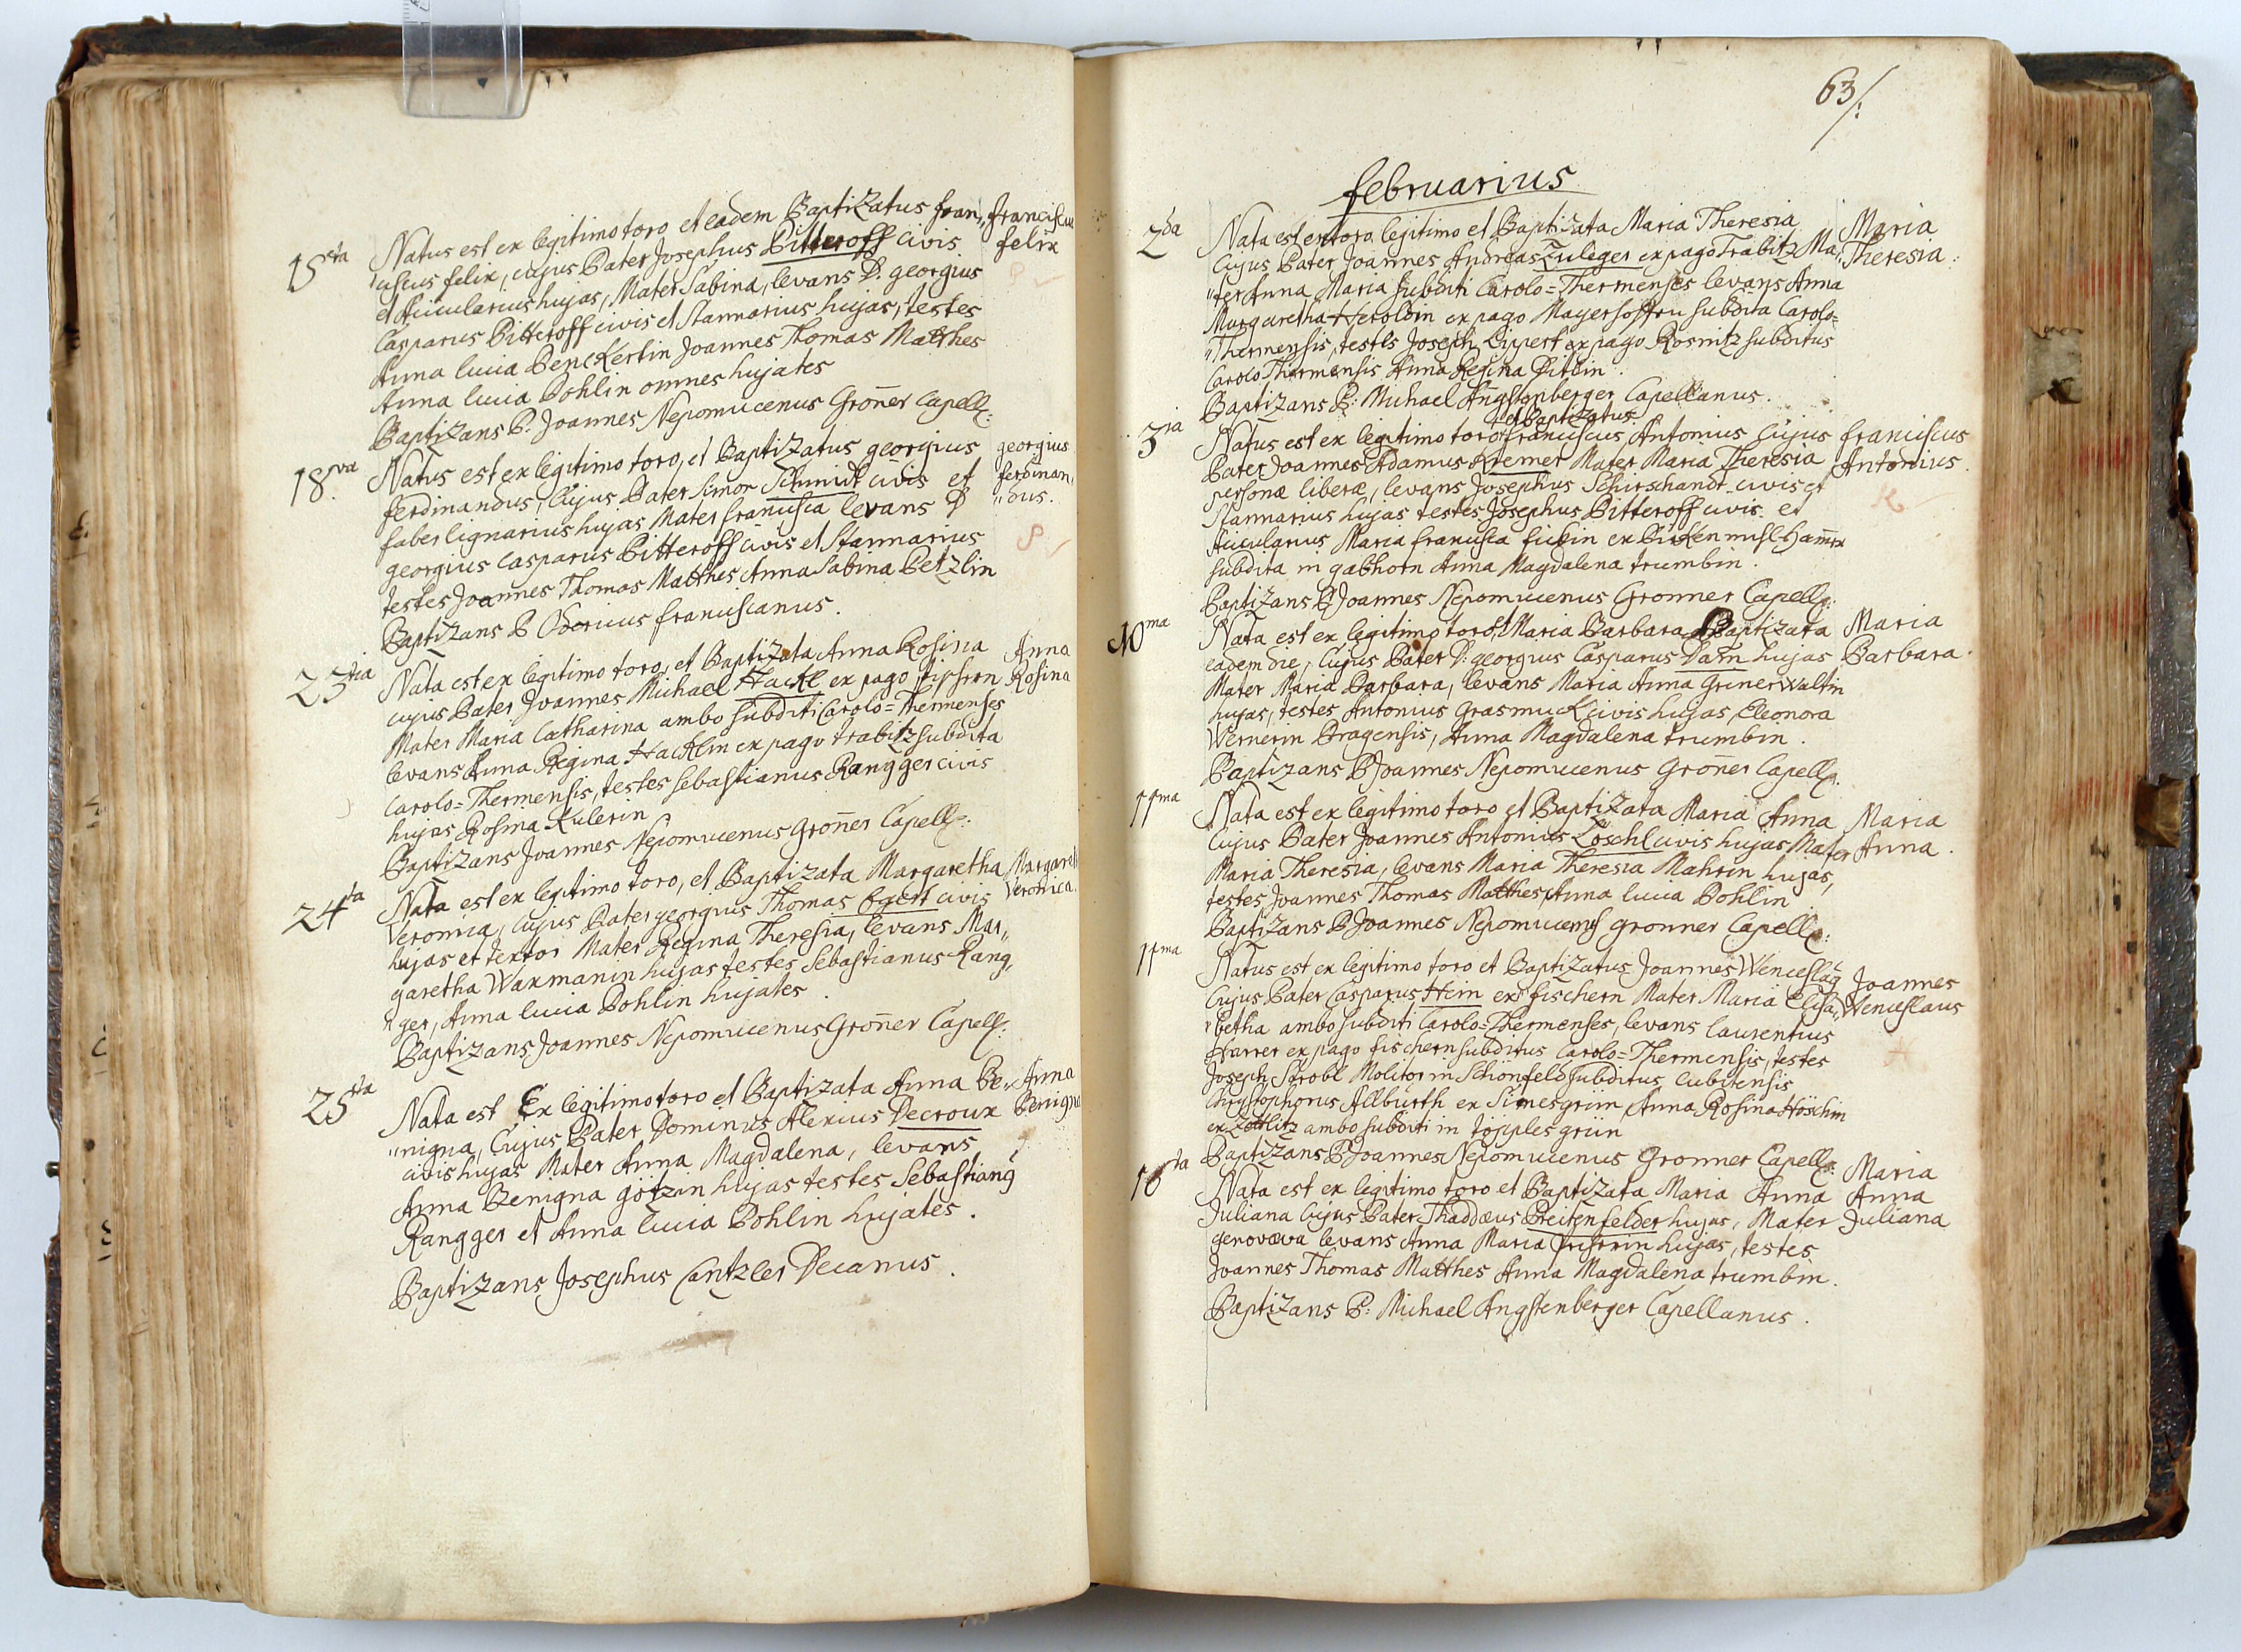 15ta Natus est ex legitimo toro et eadem Baptizatus fran„ Franciscus
„ciscus felix, cujus Pater Josephus Bitteroff civis felix
et Acicularius hujas, Mater Sabina, levans D: georgius
Casparus Bitteroff civis et Stannarius hujas, testes
Anna lucia Benckertin Joannes Thomas Matthes
Anna lucia Pohlin omnes hujates
Baptizans P: Joannes Nepomucenus Groñer Capell:
18.va Natus est ex legitimo toro, et Baptizatus georgius georgius
ferdinandus, Cujus Pater Simon Schmidt civis et ferdinan„
faber lignarius hujas Mater francisca levans D „dus.
georgius Casparus Bitteroff civis et Stannarius
testes Joannes Thomas Matthes Anna Sabina Petzlin
Baptizans P Odoricus franciscanus.
23tia Nata est ex legitimo toro, et Baptizata Anna Rosina Anna
cujus Pater Joannes Michael Hackl ex pago fischern Rosina
Mater Maria Catharina ambo subditi Carolo=Thermenses
levans Anna Regina Hacklin ex pago trabitz subdita
Carolo=Thermensis, testes Sebastianus Rangger civis
hujas Rosina Kulerin
Baptizans Joannes Nepomucenus Groñer Capell:
24ta Nata est ex legitimo toro, et Baptizata Margaretha Margareth
Veronica, cujus Pater georgius Thomas Egert civis Veronica.
hujas et textor Mater Regina Theresia, levans Mar„
garetha Waxmanin hujas testes Sebastianus Rang„
„ger, Anna lucia Pohlin hujates.
Baptizans Joannes Nepomucenus Groñer Capell:
25ta Nata est Ex legitimo toro et Baptizata Anna Be„ Anna
„nigna, Cujus Pater Dominus Alexius Decroux Benigna
civis hujas Mater Anna Magdalena, levans
Anna Benigna götzin hujas testes Sebastiang
Rangger et Anna lucia Pohlin hujates.
Baptizans Josephus Cantzler Decanus.
63/:
februarius
2da Nata est ex toro legitimo et Baptizata Maria Theresia Maria
Cujus Pater Joannes Andreas Zuleger ex pago Trabitz Ma„ Theresia:
„ter Anna Maria subditi Carolo=Thermenses levans Anna
Margaretha Heroldin ex pago Mayershoffen subdita Carolo=
„Thermensis, testes Joseph Lippert ex pago Rosnitz subditus
Carolo Thermensis Anna Regina
Baptizans P: Michael Angstenberger Capellanus.
et Baptizatus
3ia Natus est ex legitimo toro franciscus Antonius Cujus franciscus
Pater Joannes Adamus Kremer Mater Maria Theresia Antonius.
personæ liberæ, levans Josephus Schirschandt civis et
Stannarius hujas testes Josephus Bitteroff civis et
Acicularius Maria francisca fickin ex Hamer
subdita in gabhorn Anna Magdalena trumbin.
Baptizans P Joannes Nepomucenus Gronner Capell:
10ma Nata est ex legitimo toro, Maria Barbara Baptizata Maria
eadem die, Cujus Pater D: georgius Casparus hujas Barbara.
Mater Maria Barbara, levans Maria Anna Grinerwaltin
hujas, testes Antonius Grasmuck civis hujas Eleonora
Wernerin Pragensis, Anna Magdalena trumbin.
Baptizans P Joannes Nepomucenus Groñer Capell:
11ma Nata est ex legitimo toro et Baptizata Maria Anna Maria
Cujus Pater Joannes Antonius Löschl civis hujas Mater Anna.
Maria Theresia, levans Maria Theresia Mahrin hujas,
testes Joannes Thomas Matthes Anna lucia Pohlin
Baptizans P Joannes Nepomucenus gronner Capell:
11ma Natus est ex legitimo toro et Baptizatus Joannes Wenceslaq Joannes
Cujus Pater Casparus Hein ex fischern Mater Maria Elisa„ Wenceslaus
„betha ambo subditi Carolo=Thermenses, levans laurentius
Harrer ex pago fischern subditus Carolo=Thermensis, testes
Joseph Strobl Molitor in Schönfeld subditus Cubitensis
Christophorus Allburth ex Simesgriin Anna Rosina Höschin
ex Zettlitz ambo subditi in töpplesgriin
Baptizans P Joannes Nepomucenus Gronner Capell:
16ta Nata est ex legitimo toro et Baptizata Maria Anna Maria Anna
Juliana Cujus Pater Thaddæus Breitenfelder hujas, Mater Juliana
genovæva levans Anna Maria hujas, testes
Joannes Thomas Matthes Anna Magdalena trumbin.
Baptizans P: Michael Angstenberger Capellanus.